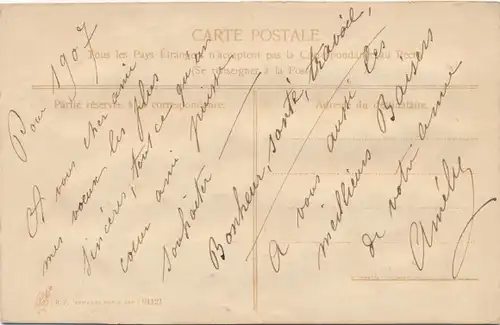 CARTE POSTALE
Tous les Pays Étrangers n'acceptent pas la Correspondance au Recto
(Se renseigner à la Poste)
Partie réservée à la correspondance.
Adresse du destinataire.
Pour 1907
A vous cher ami
mes voeux les plus
sincères, tout ce qu'un
coeur ami peut
souhaiter
Bonheur, santé, travail,
A vous aussi les
meilleurs Baisers
de votre amie
Amélie